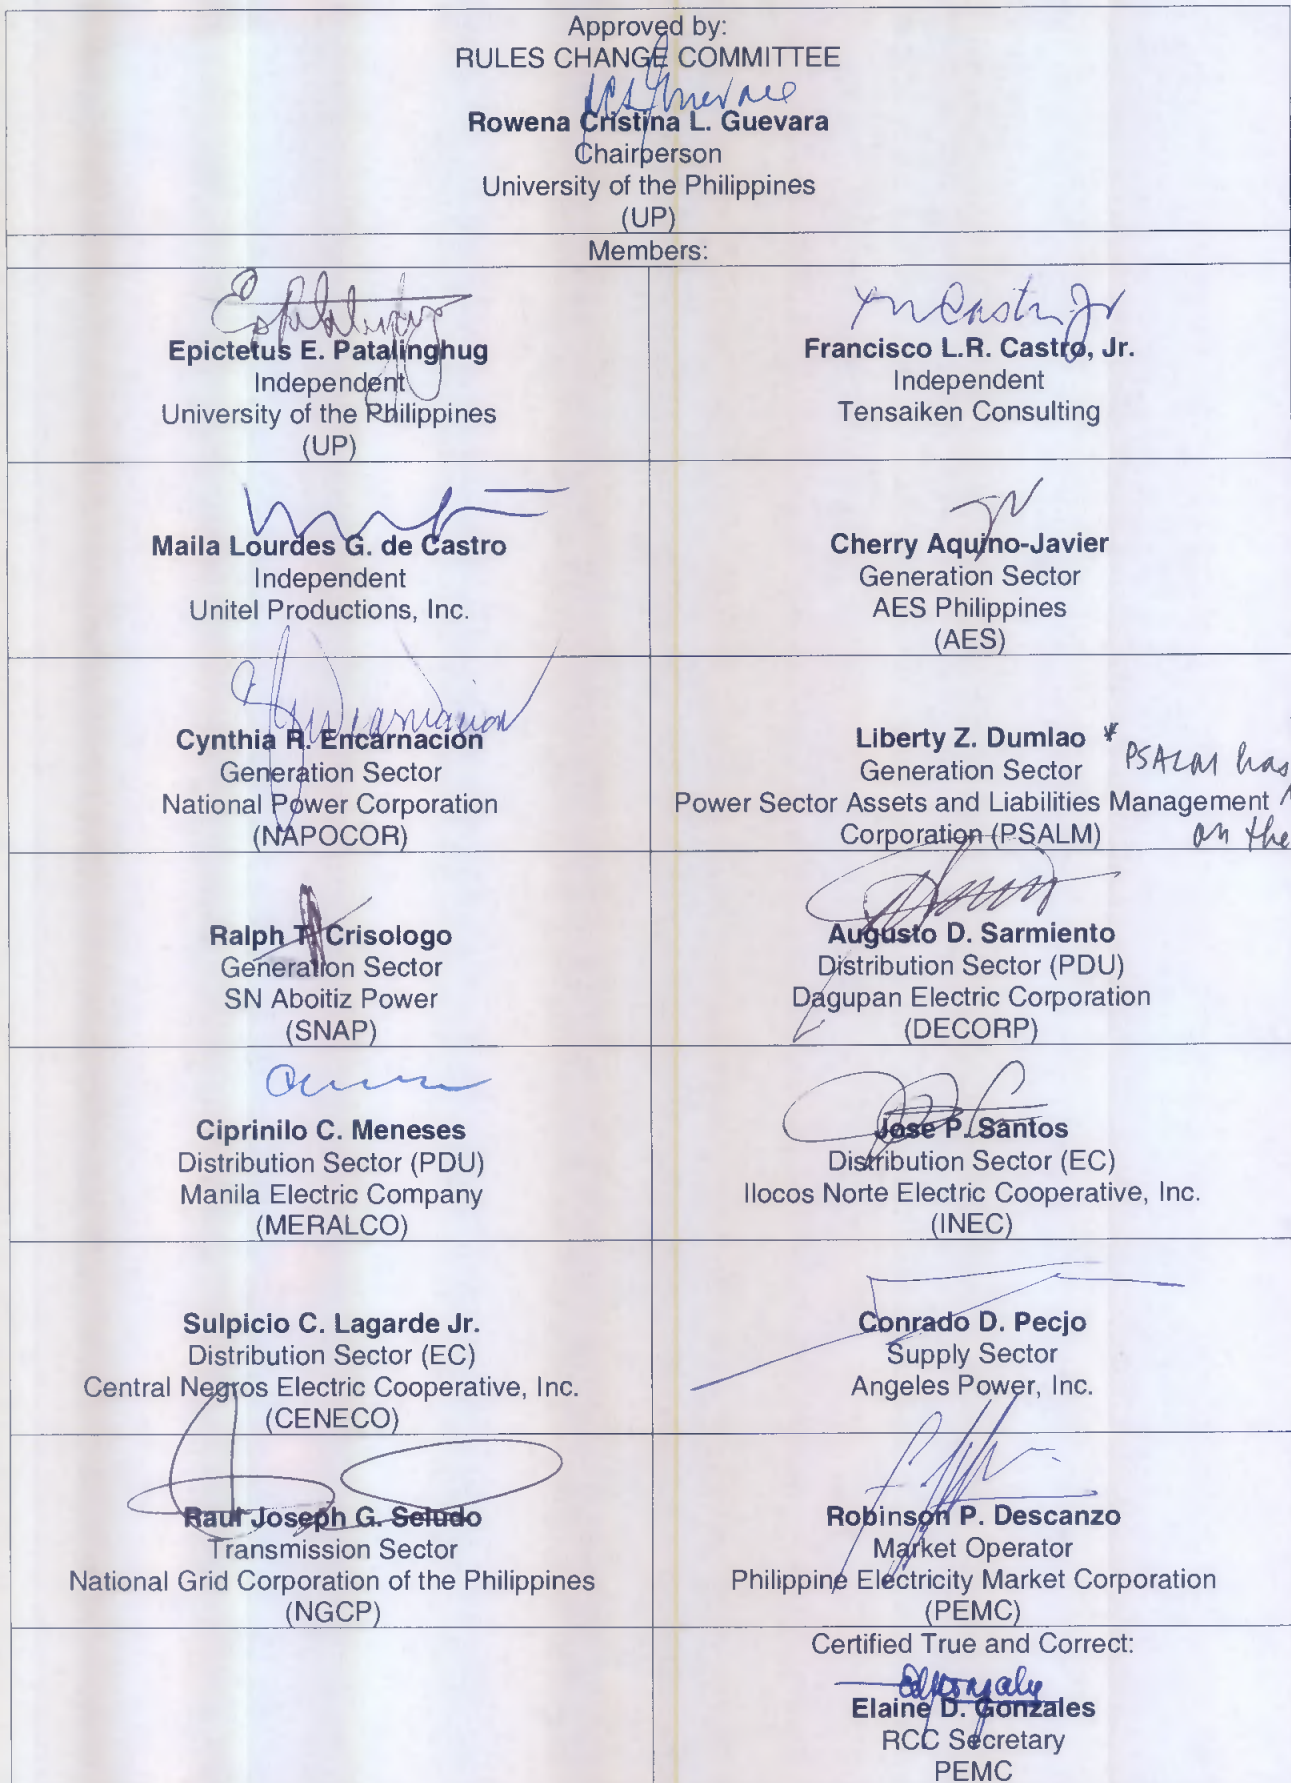 Approved by:
RULES CHANGE COMMITTEE
Rowena Cristina L. Guevara
Chairperson
University of the Philippines
(UP)
Members:
Epictetus E. Patalinghug
Independent
University of the Philippines
(UP)
Francisco L.R. Castro, Jr.
Independent
Tensaiken Consulting
Maila Lourdes G. de Castro
Independent
Unitel Productions, Inc.
Cherry Aquino-Javier
Generation Sector
AES Philippines
(AES)
Cynthia R. Encarnacion
Generation Sector
National Power Corporation
(NAPOCOR)
Liberty Z. Dumlao *
Generation Sector
Power Sector Assets and Liabilities Management
Corporation (PSALM)
PSALM has
on the
Ralph T. Crisologo
Generation Sector
SN Aboitiz Power
(SNAP)
Augusto D. Sarmiento
Distribution Sector (PDU)
Dagupan Electric Corporation
(DECORP)
Ciprinilo C. Meneses
Distribution Sector (PDU)
Manila Electric Company
(MERALCO)
Jose P. Santos
Distribution Sector (EC)
Ilocos Norte Electric Cooperative, Inc.
(INEC)
Sulpicio C. Lagarde Jr.
Distribution Sector (EC)
Central Negros Electric Cooperative, Inc.
(CENECO)
Conrado D. Pecjo
Supply Sector
Angeles Power, Inc.
Raul Joseph G. Seludo
Transmission Sector
National Grid Corporation of the Philippines
(NGCP)
Robinson P. Descanzo
Market Operator
Philippine Electricity Market Corporation
(PEMC)
Certified True and Correct:
Elaine D. Gonzales
RCC Secretary
PEMC